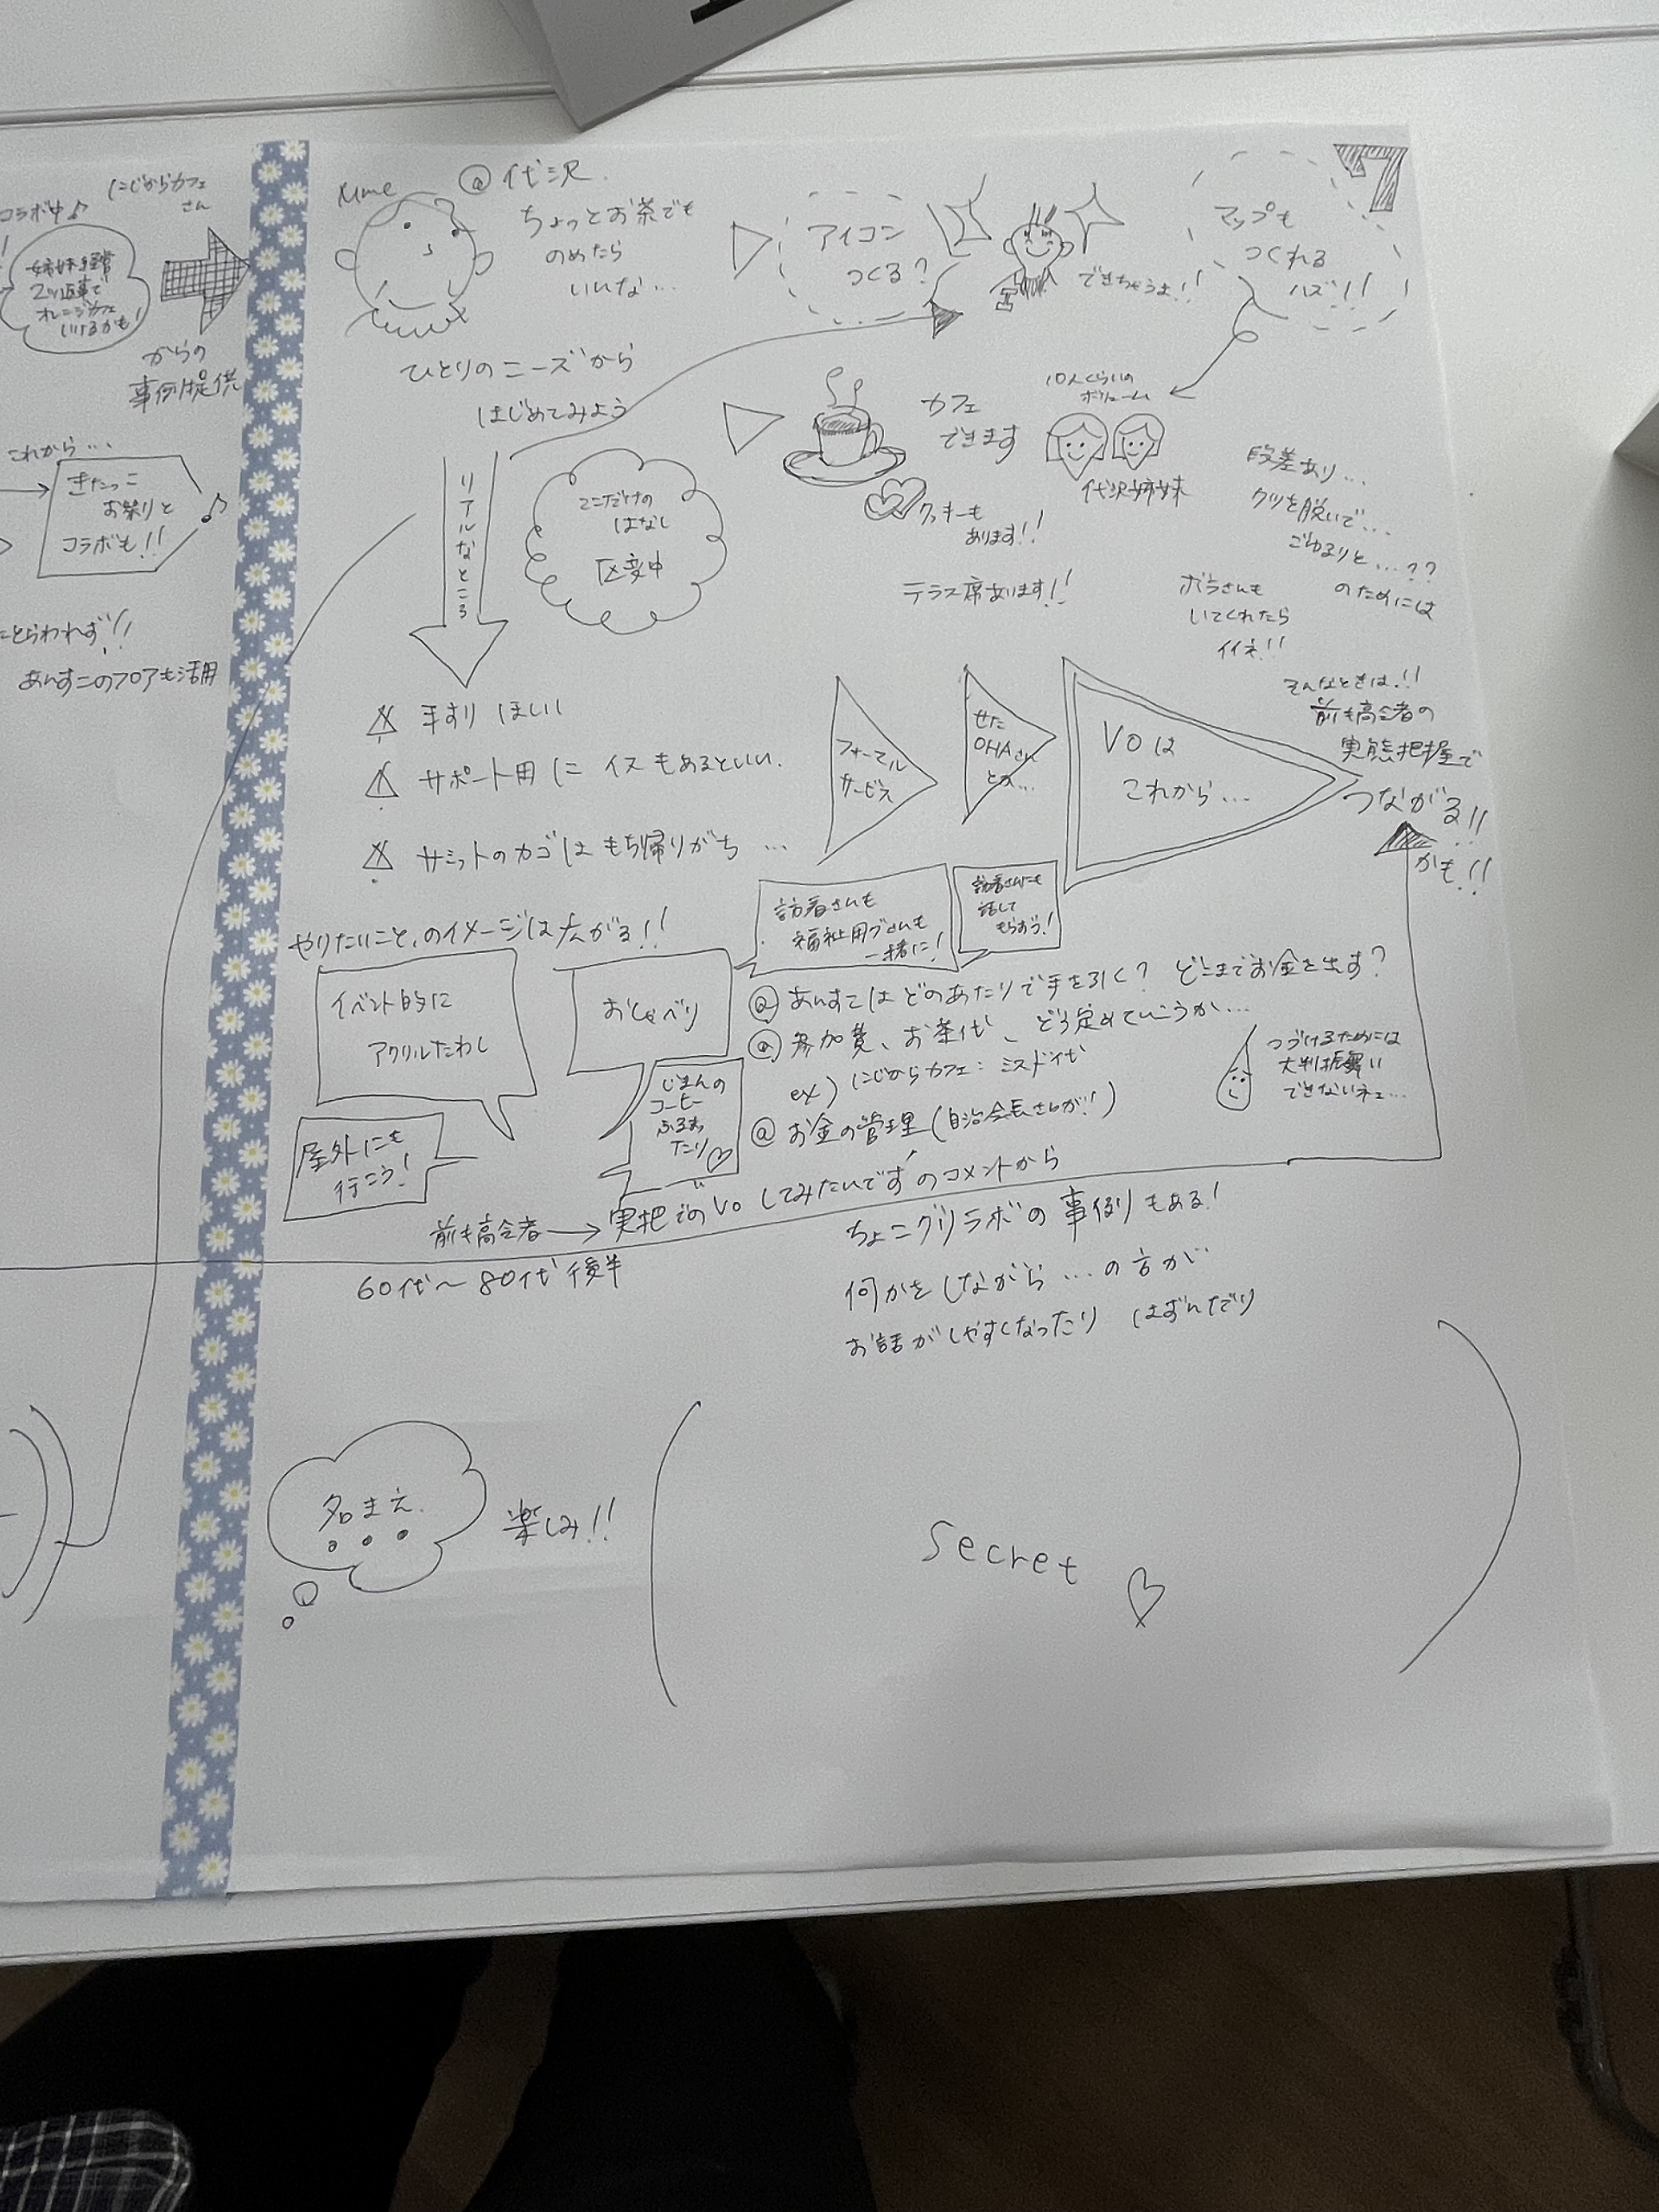 コラボ中♪
にじからカフェ
さん
姉妹経営
2ツ返事で
オレンジカフェ
いけるかも!
からの
事例提供
これから…
きたっこ
お祭りと
コラボも!!
にとらわれず!!
あんすこのフロアも活用
Mme
@代沢
ちょっとお茶でも
のめたら
いいな…
ひとりのニーズから
はじめてみよう
アイコン
つくる?
できちゃうよ!!
マップも
つくれる
ハズ!!
リアルなところ
ここだけの
はなし
カフェ
できます
クッキーも
あります!!
テラス席あります!!
10人くらいの
ボリューム
代沢姉妹
段差あり…
クツを脱いで…
ごゆるりと…??
のためには
ボラさんも
いてくれたら
イイネ!!
そんなときは!!
前も高会者の
実態把握で
つながる!!
かも!!
手すり ほしい
サポート用に イスもあるといい.
サミットのカゴは もち帰りがち …
フォーマル
サービス
せた
OHAさん
とか…
VOは
これから…
やりたいこと、のイメージは広がる!!
イベント的に
アクリルたわし
おしゃべり
屋外にも
行こう!
じまんの
コーヒー
ふるまっ
たり♡
訪看さんも
福祉用グさんも
一緒に!
訪看さんにも
話して
もらおう!
@ あんすこはどのあたりで手を引く? どこまでお金を出す?
@ 参加費、お茶代、どう定めていこうか…
ex) にじからカフェ: ミスド代
@ お金の管理(自治会長さんが!)
つづけるためには
大判振舞い
できないネェ…
前も高会者→実把でのVoしてみたいです のコメントから
60代〜80代後半
ちょこグリラボの事例もある!
何かをしながら…の方が
お話がしやすくなったり はずんだり
名まえ
楽しみ!!
secret ♡